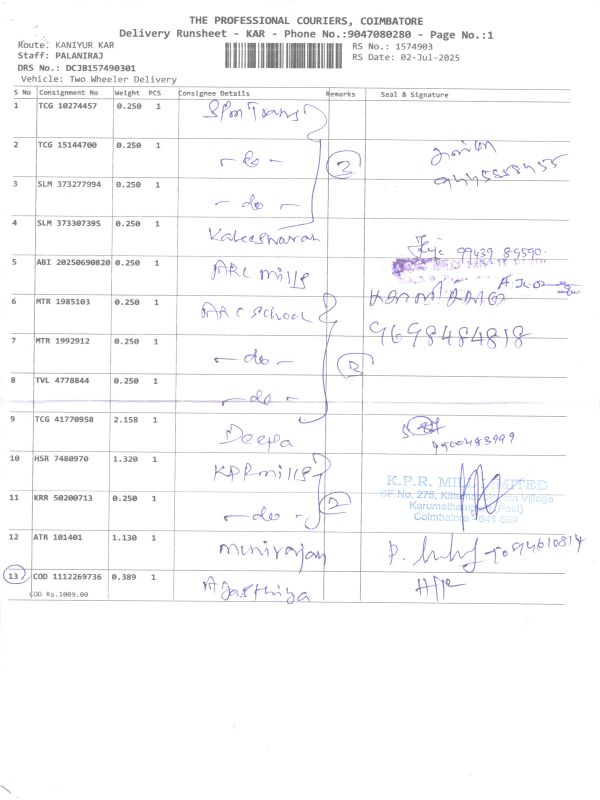 THE PROFESSIONAL COURIERS, COIMBATORE
Delivery Runsheet - KAR - Phone No.:9047080280 - Page No.:1
Route: KANIYUR KAR
RS No.: 1574903
Staff: PALANIRAJ
RS Date: 02-Jul-2025
DRS No.: DCJB157490301
Vehicle: Two Wheeler Delivery
S No Consignment No Weight PCS Consignee Details Remarks Seal & Signature
1 TCG 10274457 0.250 1 SPM Trans
2 TCG 15144700 0.250 1 - do - 3
3 SLM 373277994 0.250 1 - do -
4 SLM 373307395 0.250 1 Kaleeswaran 99439 89590
5 ABI 20250690820 0.250 1 ARC mills
6 MTR 1985103 0.250 1 ARC School
7 MTR 1992912 0.250 1 - do - 3 9698484818
8 TVL 4778844 0.250 1 - do -
9 TCG 41770958 2.158 1 Deepa
10 HSR 7480970 1.320 1 KPR mills K.P.R. MILL LIMITED
11 KRR 50200713 0.250 1 - do - 2 SF No. 275, Village
Karumatham (Post)
Coimbatore - 641 659
12 ATR 101401 1.130 1 Munirajan
13 COD 1112269736 0.389 1 Agasthiya
COD Rs.1009.00